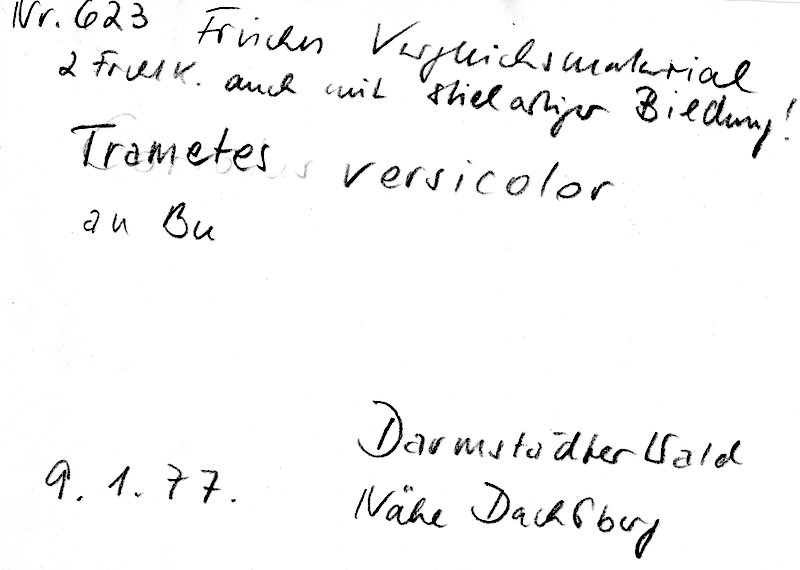 Nr. 623 Frisches Vergleichsmaterial
2 Frchk. auch mit stielartiger Bildung!
Trametes versicolor
an Bu
Darmstädter Wald
9.1.77. Nähe Dachsberg